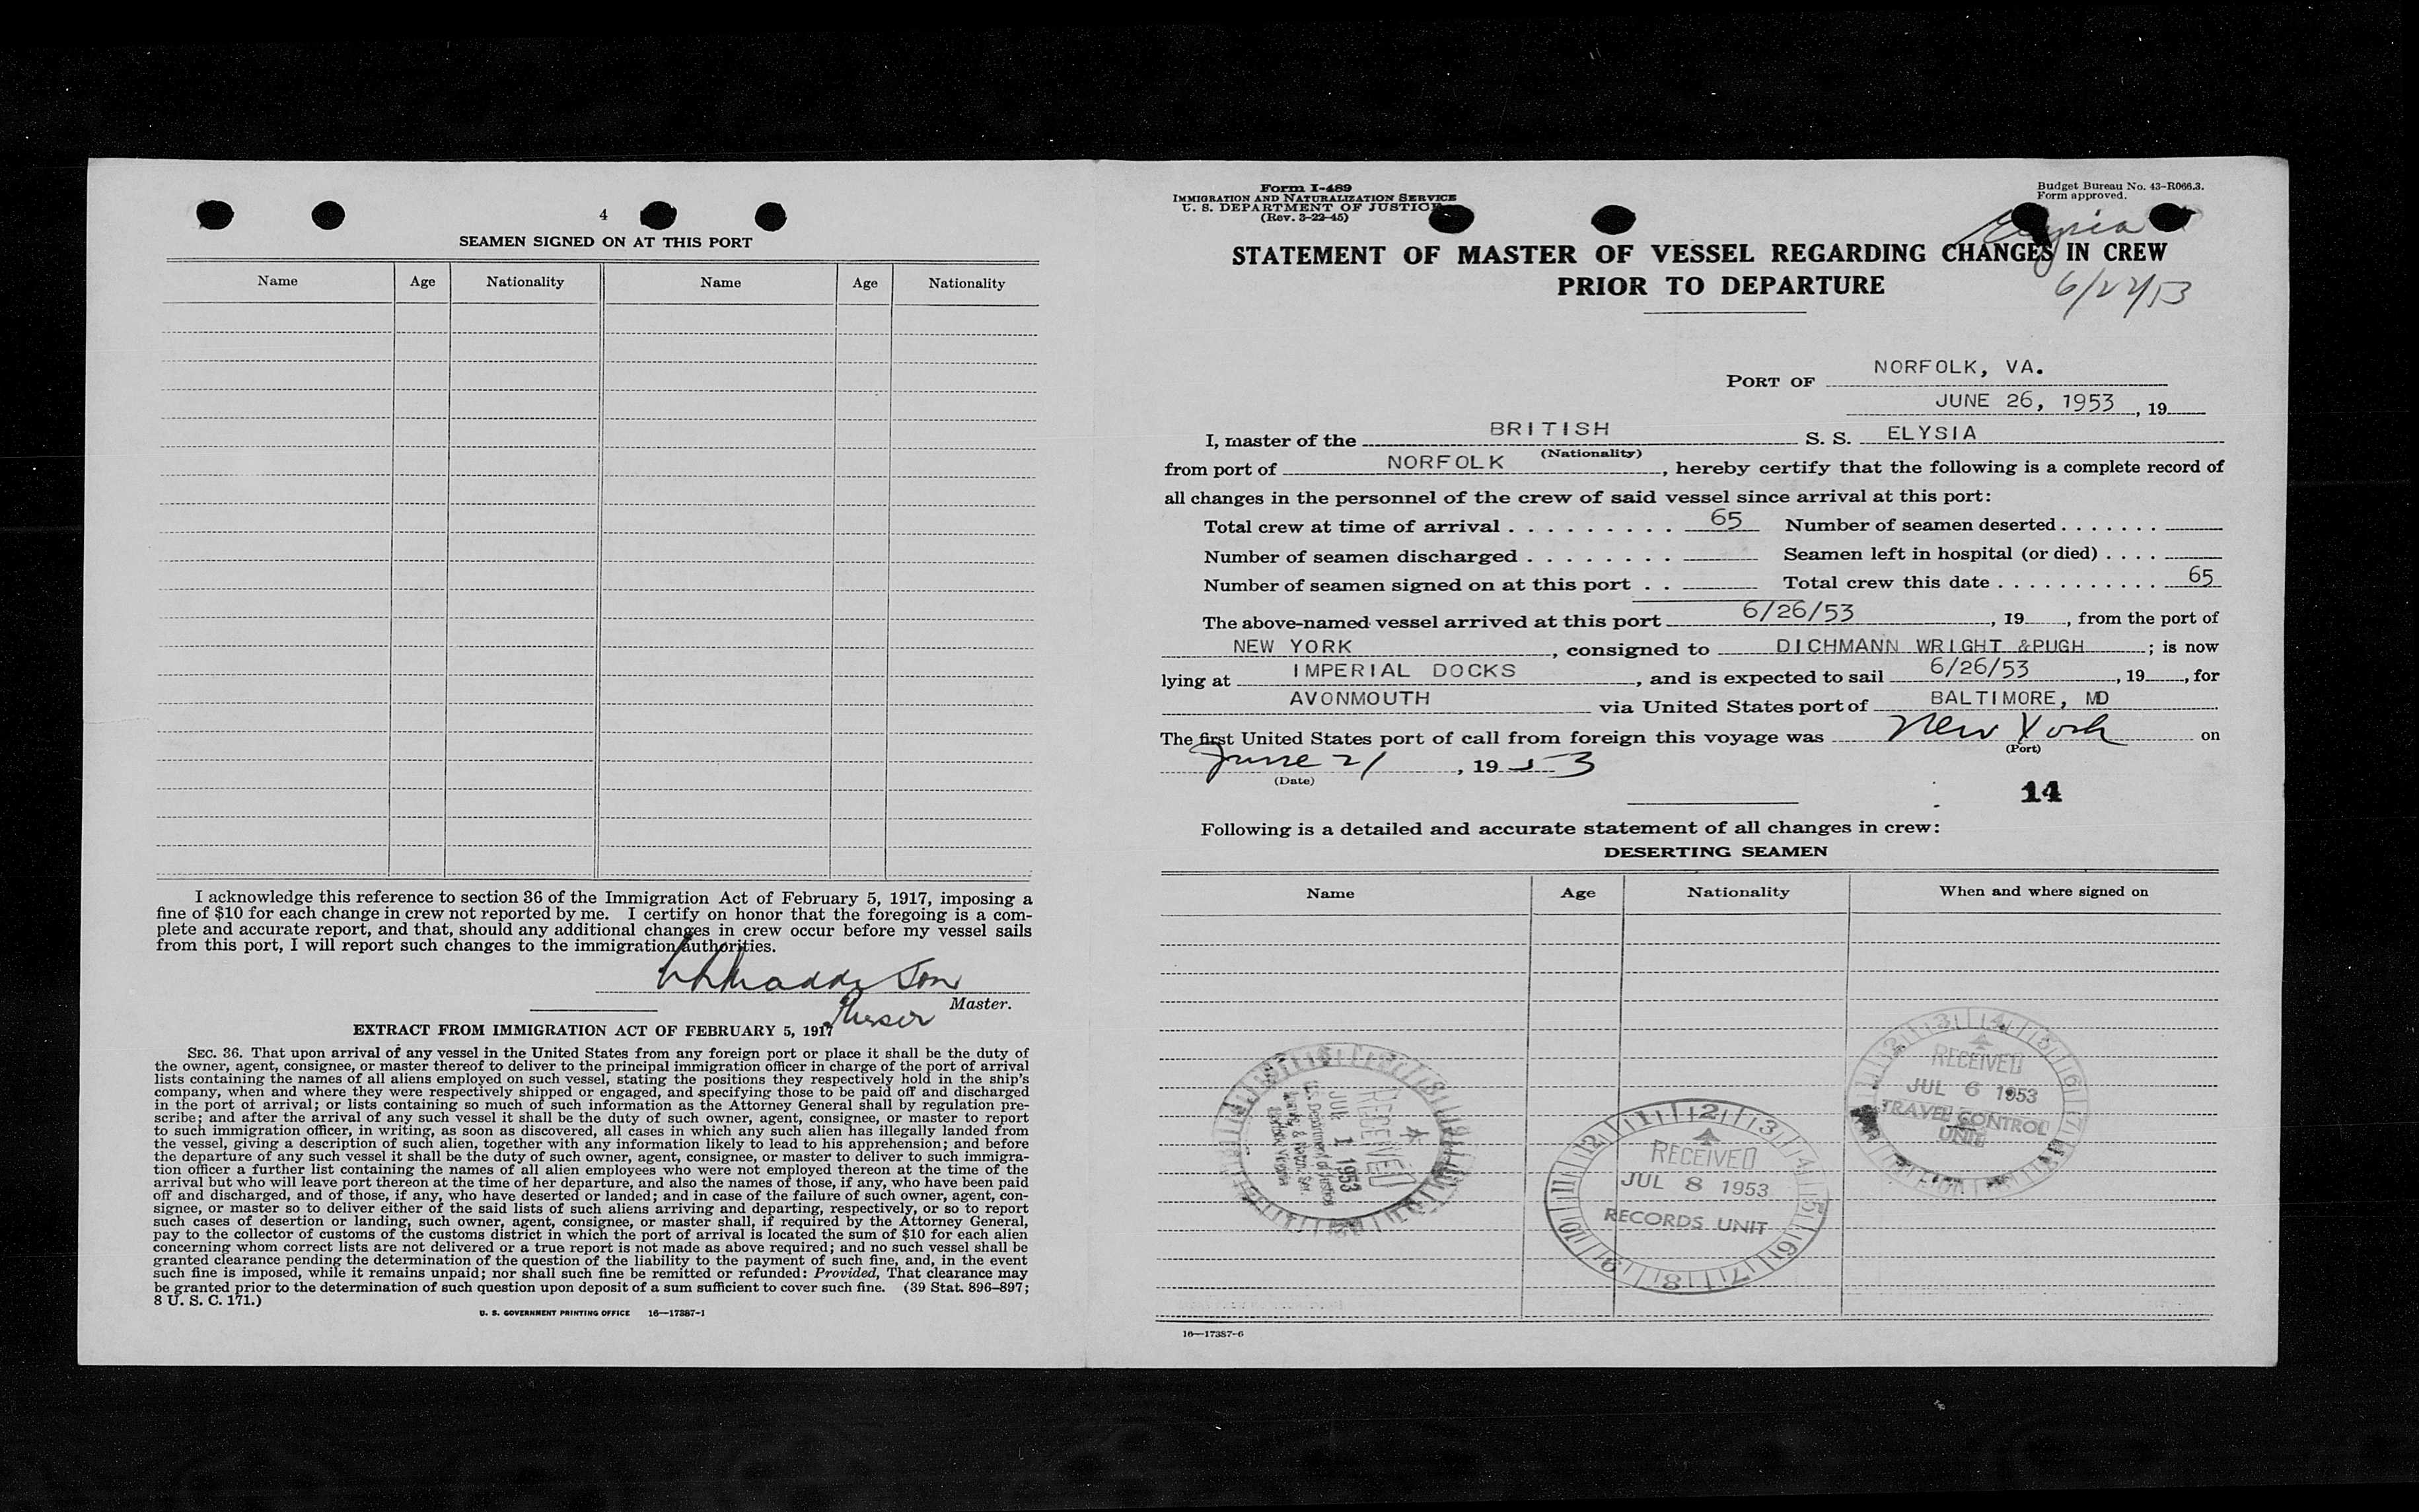 4
SEAMEN SIGNED ON AT THIS PORT
Name Age Nationality Name Age Nationality
I acknowledge this reference to section 36 of the Immigration Act of February 5, 1917, imposing a
fine of $10 for each change in crew not reported by me. I certify on honor that the foregoing is a com-
plete and accurate report, and that, should any additional changes in crew occur before my vessel sails
from this port, I will report such changes to the immigration authorities.
Master.
EXTRACT FROM IMMIGRATION ACT OF FEBRUARY 5, 1917
SEC. 36. That upon arrival of any vessel in the United States from any foreign port or place it shall be the duty of
the owner, agent, consignee, or master thereof to deliver to the principal immigration officer in charge of the port of arrival
lists containing the names of all aliens employed on such vessel, stating the positions they respectively hold in the ship's
company, when and where they were respectively shipped or engaged, and specifying those to be paid off and discharged
in the port of arrival; or lists containing so much of such information as the Attorney General shall by regulation pre-
scribe; and after the arrival of any such vessel it shall be the duty of such owner, agent, consignee, or master to report
to such immigration officer, in writing, as soon as discovered, all cases in which any such alien has illegally landed from
the vessel, giving a description of such alien, together with any information likely to lead to his apprehension; and before
the departure of any such vessel it shall be the duty of such owner, agent, consignee, or master to deliver to such immigra-
tion officer a further list containing the names of all alien employees who were not employed thereon at the time of the
arrival but who will leave port thereon at the time of her departure, and also the names of those, if any, who have been paid
off and discharged, and of those, if any, who have deserted or landed; and in case of the failure of such owner, agent, con-
signee, or master so to deliver either of the said lists of such aliens arriving and departing, respectively, or so to report
such cases of desertion or landing, such owner, agent, consignee, or master shall, if required by the Attorney General,
pay to the collector of customs of the customs district in which the port of arrival is located the sum of $10 for each alien
concerning whom correct lists are not delivered or a true report is not made as above required; and no such vessel shall be
granted clearance pending the determination of the question of the liability to the payment of such fine, and, in the event
such fine is imposed, while it remains unpaid; nor shall such fine be remitted or refunded: Provided, That clearance may
be granted prior to the determination of such question upon deposit of a sum sufficient to cover such fine. (39 Stat. 896–897;
8 U. S. C. 171.)
U. S. GOVERNMENT PRINTING OFFICE 16—17387-1
Form I-489
IMMIGRATION AND NATURALIZATION SERVICE
U. S. DEPARTMENT OF JUSTICE
(Rev. 3-22-45)
Budget Bureau No. 43-R066.3.
Form approved.
Elysia
STATEMENT OF MASTER OF VESSEL REGARDING CHANGES IN CREW
PRIOR TO DEPARTURE
PORT OF NORFOLK, VA.
JUNE 26, 1953, 19
I, master of the BRITISH S. S. ELYSIA
(Nationality)
from port of NORFOLK, hereby certify that the following is a complete record of
all changes in the personnel of the crew of said vessel since arrival at this port:
Total crew at time of arrival . . . . . . . . . 65 Number of seamen deserted . . . . . . .
Number of seamen discharged . . . . . . . . Seamen left in hospital (or died) . . . .
Number of seamen signed on at this port . . Total crew this date . . . . . . . . . . . 65
The above-named vessel arrived at this port 6/26/53, 19, from the port of
NEW YORK, consigned to DICHMANN WRIGHT &PUGH; is now
lying at IMPERIAL DOCKS, and is expected to sail 6/26/53, 19, for
AVONMOUTH via United States port of BALTIMORE, MD
The first United States port of call from foreign this voyage was New York on
(Port)
June 21, 1953
(Date)
14
Following is a detailed and accurate statement of all changes in crew:
DESERTING SEAMEN
Name Age Nationality When and where signed on
RECEIVED
JUL 1 1953
U.S. Department of Justice
RECEIVED
JUL 8 1953
RECORDS UNIT
RECEIVED
JUL 6 1953
TRAVEL CONTROL
UNIT
16—17387-6